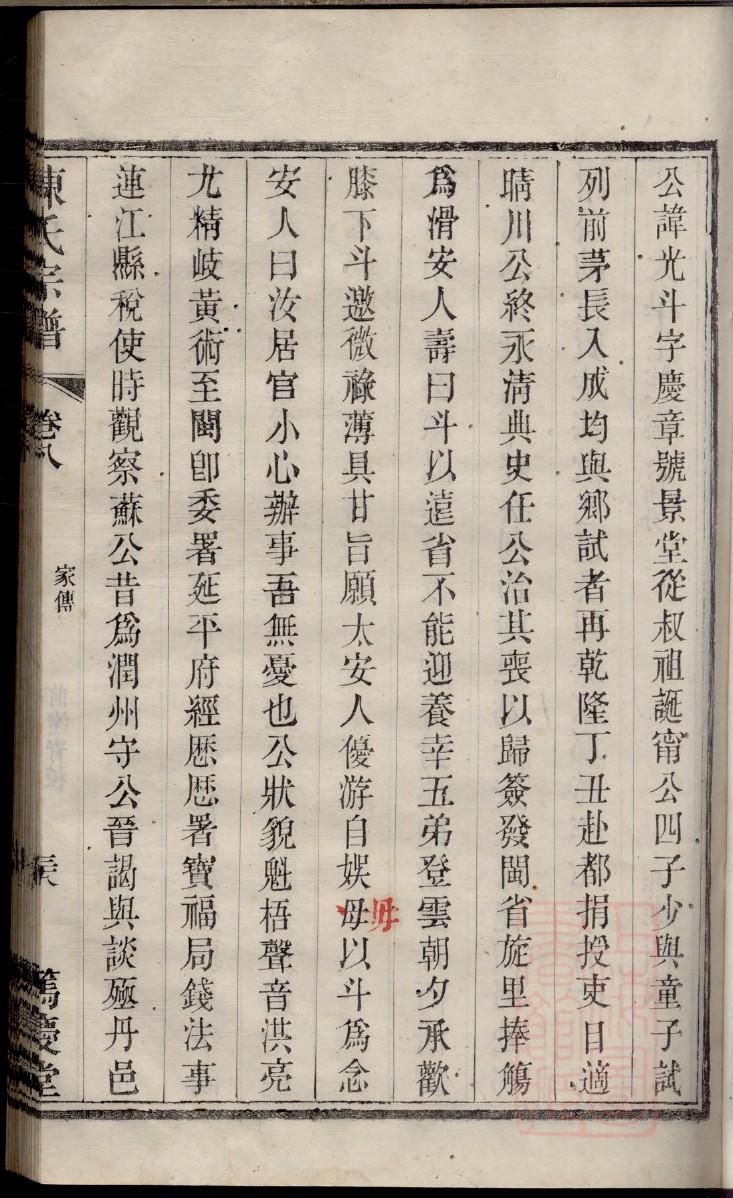 公諱光斗字慶章號景堂從叔祖誕甯公四子少與童子試
列前茅長入成均與鄉試者再乾隆丁丑赴都捐授吏目適
晴川公終永清典史任公治其喪以歸簽發閩省旋里捧觴
爲滑安人壽曰斗以遠省不能迎養幸五弟登雲朝夕承歡
膝下斗邀微祿薄具甘旨願太安人優游自娛母以斗爲念
毋
安人曰汝居官小心辦事吾無憂也公狀貌魁梧聲音洪亮
尤精岐黃術至閩卽委署延平府經歷歷署寶福局錢法事
連江縣稅使時觀察蘇公昔爲潤州守公晉謁與談殛丹邑
陳氏宗譜
卷八
家傳
篤慶堂